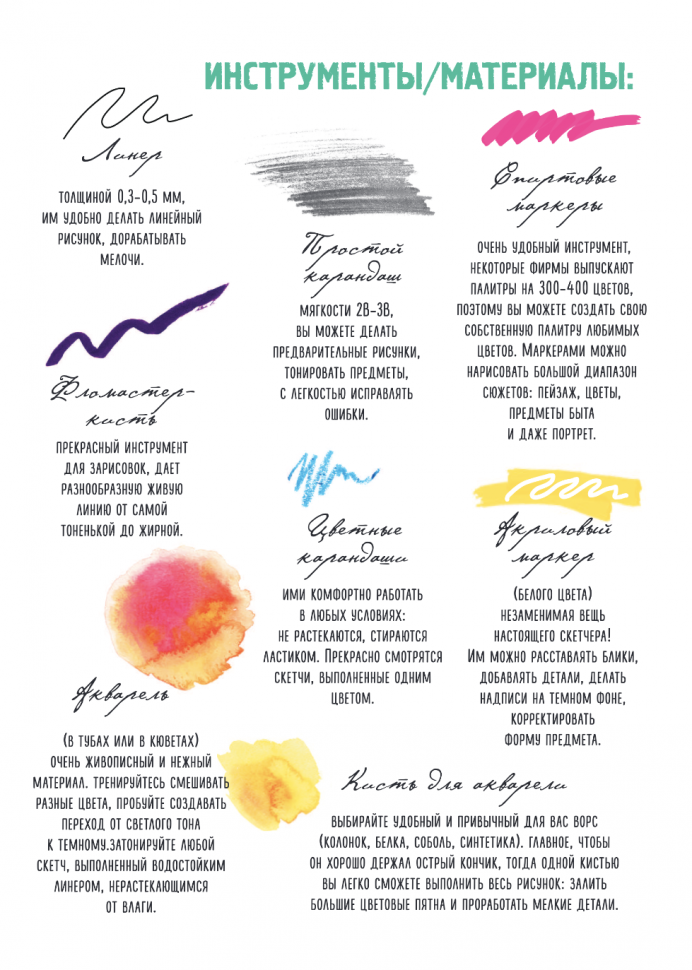 ИНСТРУМЕНТЫ/МАТЕРИАЛЫ:
Линер
ТОЛЩИНОЙ 0,3–0,5 ММ,
ИМ УДОБНО ДЕЛАТЬ ЛИНЕЙНЫЙ
РИСУНОК, ДОРАБАТЫВАТЬ
МЕЛОЧИ.
Фломастер-
кисть
ПРЕКРАСНЫЙ ИНСТРУМЕНТ
ДЛЯ ЗАРИСОВОК, ДАЕТ
РАЗНООБРАЗНУЮ ЖИВУЮ
ЛИНИЮ ОТ САМОЙ
ТОНЕНЬКОЙ ДО ЖИРНОЙ.
Акварель
(В ТУБАХ ИЛИ В КЮВЕТАХ)
ОЧЕНЬ ЖИВОПИСНЫЙ И НЕЖНЫЙ
МАТЕРИАЛ. ТРЕНИРУЙТЕСЬ СМЕШИВАТЬ
РАЗНЫЕ ЦВЕТА, ПРОБУЙТЕ СОЗДАВАТЬ
ПЕРЕХОД ОТ СВЕТЛОГО ТОНА
К ТЕМНОМУ.ЗАТОНИРУЙТЕ ЛЮБОЙ
СКЕТЧ, ВЫПОЛНЕННЫЙ ВОДОСТОЙКИМ
ЛИНЕРОМ, НЕРАСТЕКАЮЩИМСЯ
ОТ ВЛАГИ.
Простой
карандаш
МЯГКОСТИ 2В–3В,
ВЫ МОЖЕТЕ ДЕЛАТЬ
ПРЕДВАРИТЕЛЬНЫЕ РИСУНКИ,
ТОНИРОВАТЬ ПРЕДМЕТЫ,
С ЛЕГКОСТЬЮ ИСПРАВЛЯТЬ
ОШИБКИ.
Цветные
карандаши
ИМИ КОМФОРТНО РАБОТАТЬ
В ЛЮБЫХ УСЛОВИЯХ:
НЕ РАСТЕКАЮТСЯ, СТИРАЮТСЯ
ЛАСТИКОМ. ПРЕКРАСНО СМОТРЯТСЯ
СКЕТЧИ, ВЫПОЛНЕННЫЕ ОДНИМ
ЦВЕТОМ.
Спиртовые
маркеры
ОЧЕНЬ УДОБНЫЙ ИНСТРУМЕНТ,
НЕКОТОРЫЕ ФИРМЫ ВЫПУСКАЮТ
ПАЛИТРЫ НА 300–400 ЦВЕТОВ,
ПОЭТОМУ ВЫ МОЖЕТЕ СОЗДАТЬ СВОЮ
СОБСТВЕННУЮ ПАЛИТРУ ЛЮБИМЫХ
ЦВЕТОВ. МАРКЕРАМИ МОЖНО
НАРИСОВАТЬ БОЛЬШОЙ ДИАПАЗОН
СЮЖЕТОВ: ПЕЙЗАЖ, ЦВЕТЫ,
ПРЕДМЕТЫ БЫТА
И ДАЖЕ ПОРТРЕТ.
Акриловый
маркер
(БЕЛОГО ЦВЕТА)
НЕЗАМЕНИМАЯ ВЕЩЬ
НАСТОЯЩЕГО СКЕТЧЕРА!
ИМ МОЖНО РАССТАВЛЯТЬ БЛИКИ,
ДОБАВЛЯТЬ ДЕТАЛИ, ДЕЛАТЬ
НАДПИСИ НА ТЕМНОМ ФОНЕ,
КОРРЕКТИРОВАТЬ
ФОРМУ ПРЕДМЕТА.
Кисть для акварели
ВЫБИРАЙТЕ УДОБНЫЙ И ПРИВЫЧНЫЙ ДЛЯ ВАС ВОРС
(КОЛОНОК, БЕЛКА, СОБОЛЬ, СИНТЕТИКА). ГЛАВНОЕ, ЧТОБЫ
ОН ХОРОШО ДЕРЖАЛ ОСТРЫЙ КОНЧИК, ТОГДА ОДНОЙ КИСТЬЮ
ВЫ ЛЕГКО СМОЖЕТЕ ВЫПОЛНИТЬ ВЕСЬ РИСУНОК: ЗАЛИТЬ
БОЛЬШИЕ ЦВЕТОВЫЕ ПЯТНА И ПРОРАБОТАТЬ МЕЛКИЕ ДЕТАЛИ.